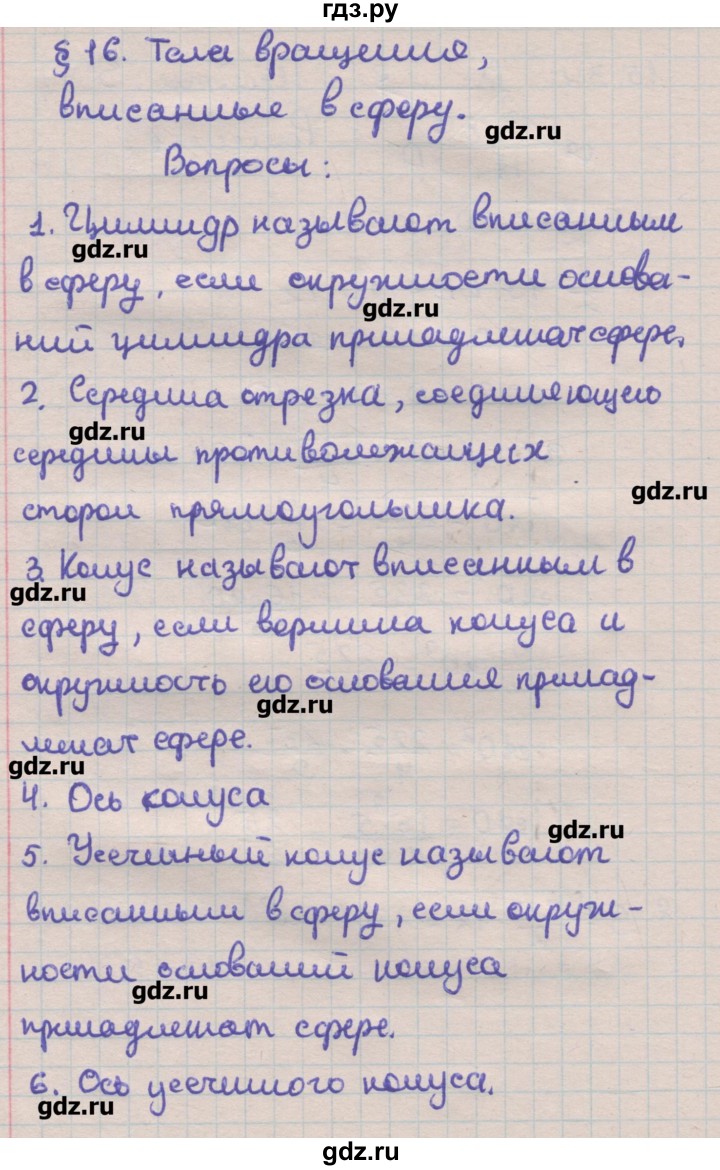 гдз.ру
§ 16. Тела вращения,
вписанные в сферу.
gdz.ru
Вопросы:
1. Цилиндр называют вписанным
gdz.ru
в сферу, если окружности основа-
gdz.ru
ний цилиндра принадлежат сфере.
2. Середина отрезка, соединяющего
gdz.ru
середины противолежащих
gdz.ru
сторон прямоугольника.
3. Конус называют вписанным в
gdz.ru
сферу, если вершина конуса и
окружность его основания принад-
gdz.ru
лежат сфере.
gdz.ru
4. Ось конуса
gdz.ru
5. Усечённый конус называют
вписанным в сферу, если окруж-
ности оснований конуса
gdz.ru
принадлежат сфере.
6. Ось усечённого конуса.
gdz.ru
gdz.ru